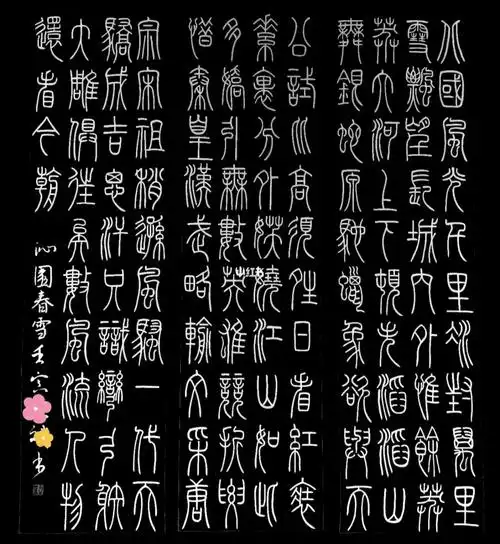 北國風光千里冰封萬里
雪飄望長城內外惟餘莽
莽大河上下頓失滔滔山
舞銀蛇原馳蠟象欲與天
公試比高須晴日看紅裝
素裹分外妖嬈江山如此
多嬌引無數英雄競折腰
惜秦皇漢武略輸文采唐
宗宋祖稍遜風騷一代天
驕成吉思汗只識彎弓射
大雕俱往矣數風流人物
還看今朝
沁園春雪壬寅 书